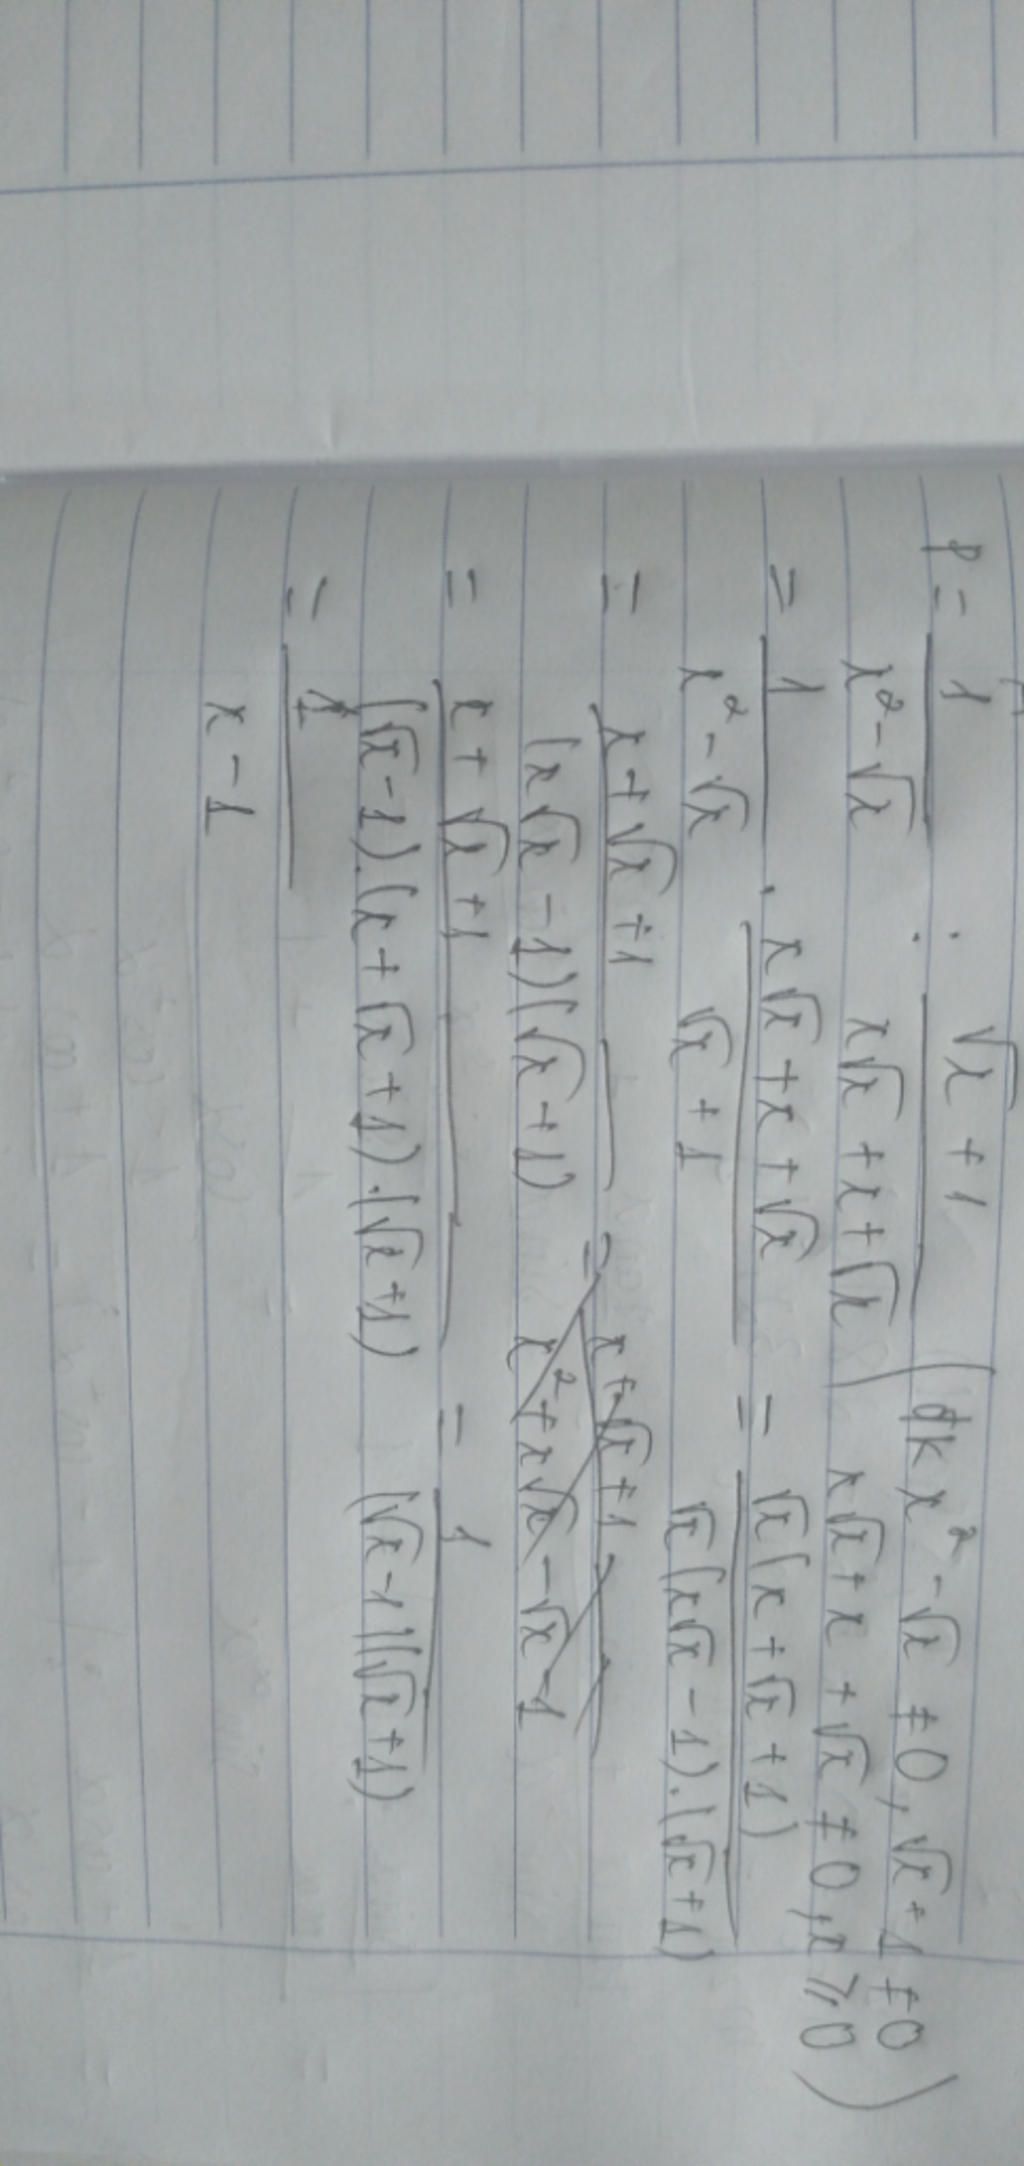 P = 1/(x² - √x) : (√x + 1)/(x√x + x + √x) (đk x² - √x ≠ 0, √x + 1 ≠ 0
x√x + x + √x ≠ 0, x ⩾ 0)
= 1/(x² - √x) . (x√x + x + √x)/(√x + 1) = √x(x + √x + 1)/(√x(x√x - 1).(√x + 1))
= (x + √x + 1)/((x√x - 1)(√x + 1)) = (x + √x + 1)/(x² + x√x - √x - 1)
= (x + √x + 1)/((√x - 1).(x + √x + 1).(√x + 1)) = 1/((√x - 1)(√x + 1))
= 1/(x - 1)